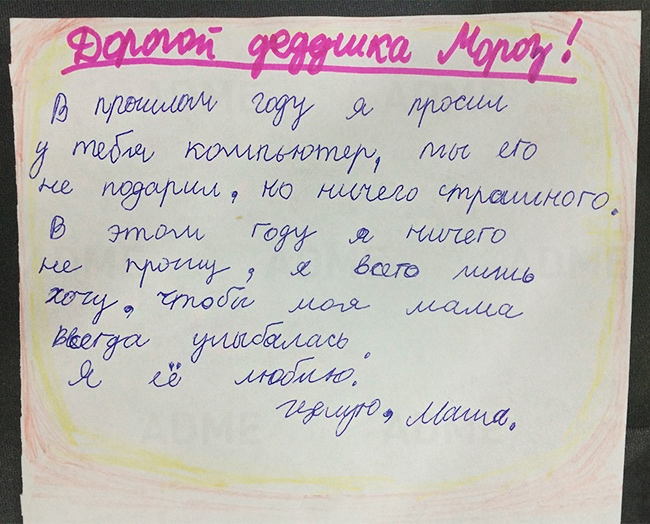 Дорогой дедушка Мороз!
В прошлом году я просил
у тебя компьютер, ты его
не подарил, но ничего страшного.
В этом году я ничего
не прошу, я всего лишь
хочу, чтобы моя мама
всегда улыбалась.
Я её люблю.
Целую, Маша.